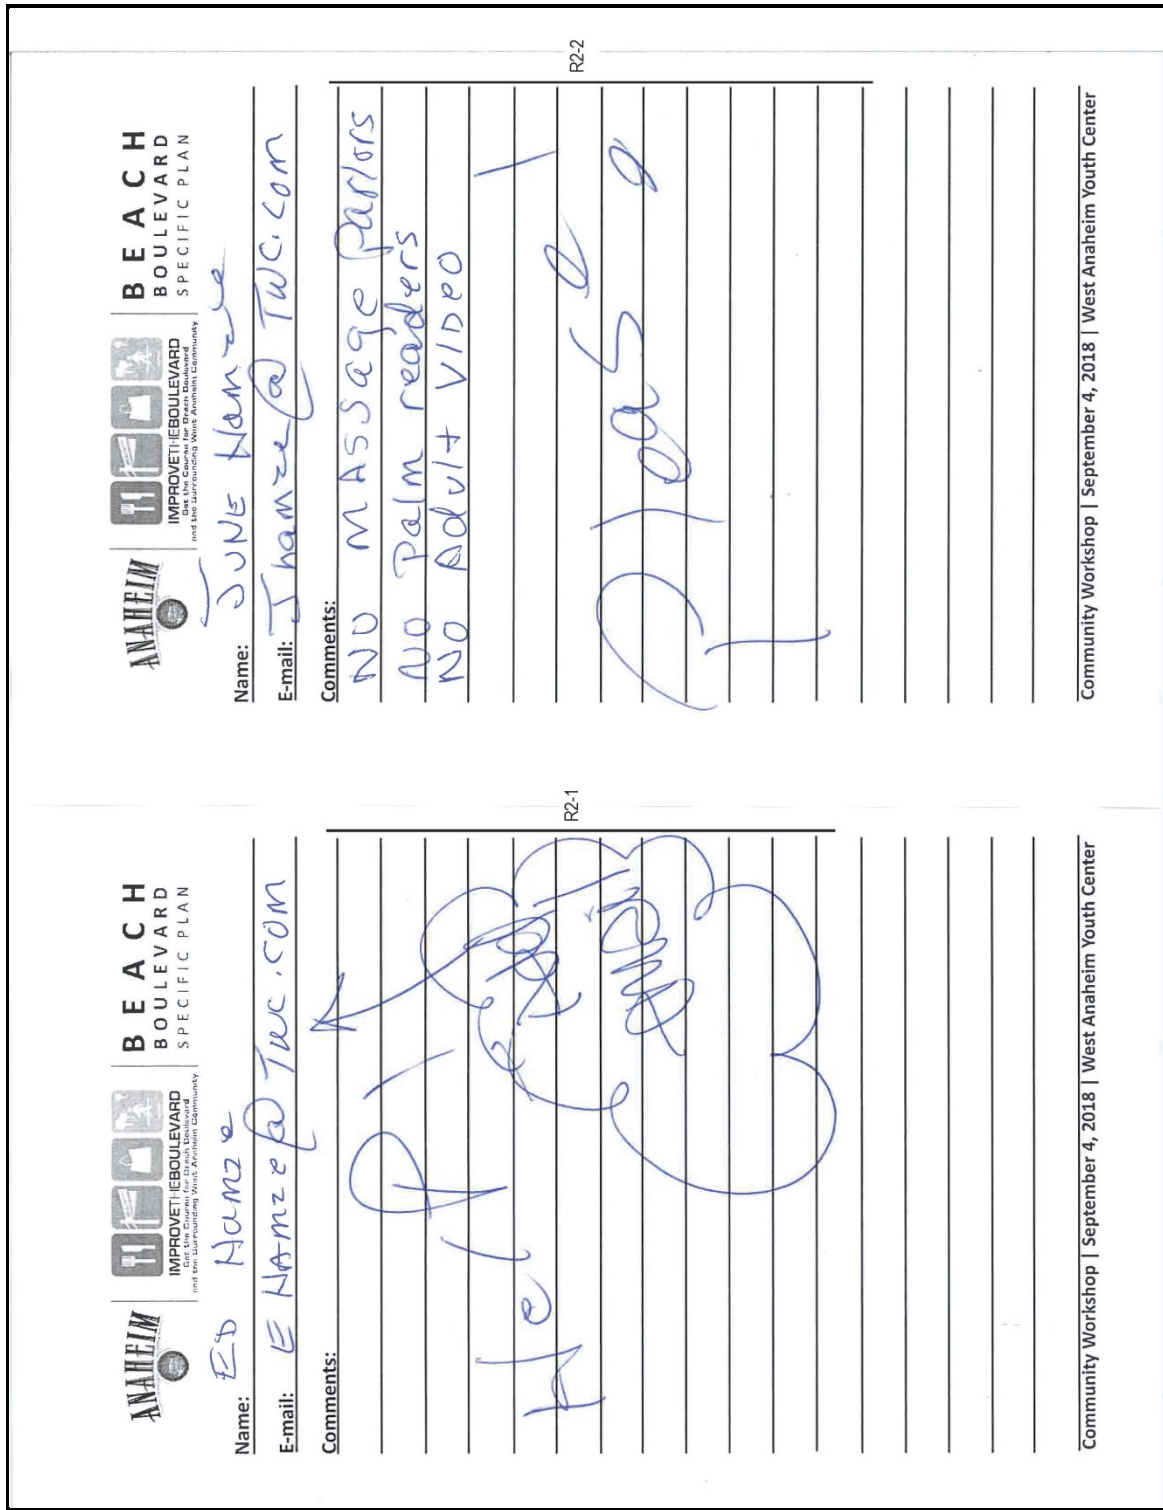 ANAHEIM
IMPROVETHEBOULEVARD
Set the Course for Beach Boulevard
and the Surrounding West Anaheim Community
BEACH
BOULEVARD
SPECIFIC PLAN
Name: ED Hamze
E-mail: EHAmze@TWC.COM
Comments:
Hel
R2-1
Community Workshop | September 4, 2018 | West Anaheim Youth Center
ANAHEIM
IMPROVETHEBOULEVARD
Set the Course for Beach Boulevard
and the Surrounding West Anaheim Community
BEACH
BOULEVARD
SPECIFIC PLAN
Name: JUNE Hamze
E-mail: Jhamze@TWC.COM
Comments:
NO MASSage Parlors
NO Palm readers
NO Adult VIDEO
Please
R2-2
Community Workshop | September 4, 2018 | West Anaheim Youth Center